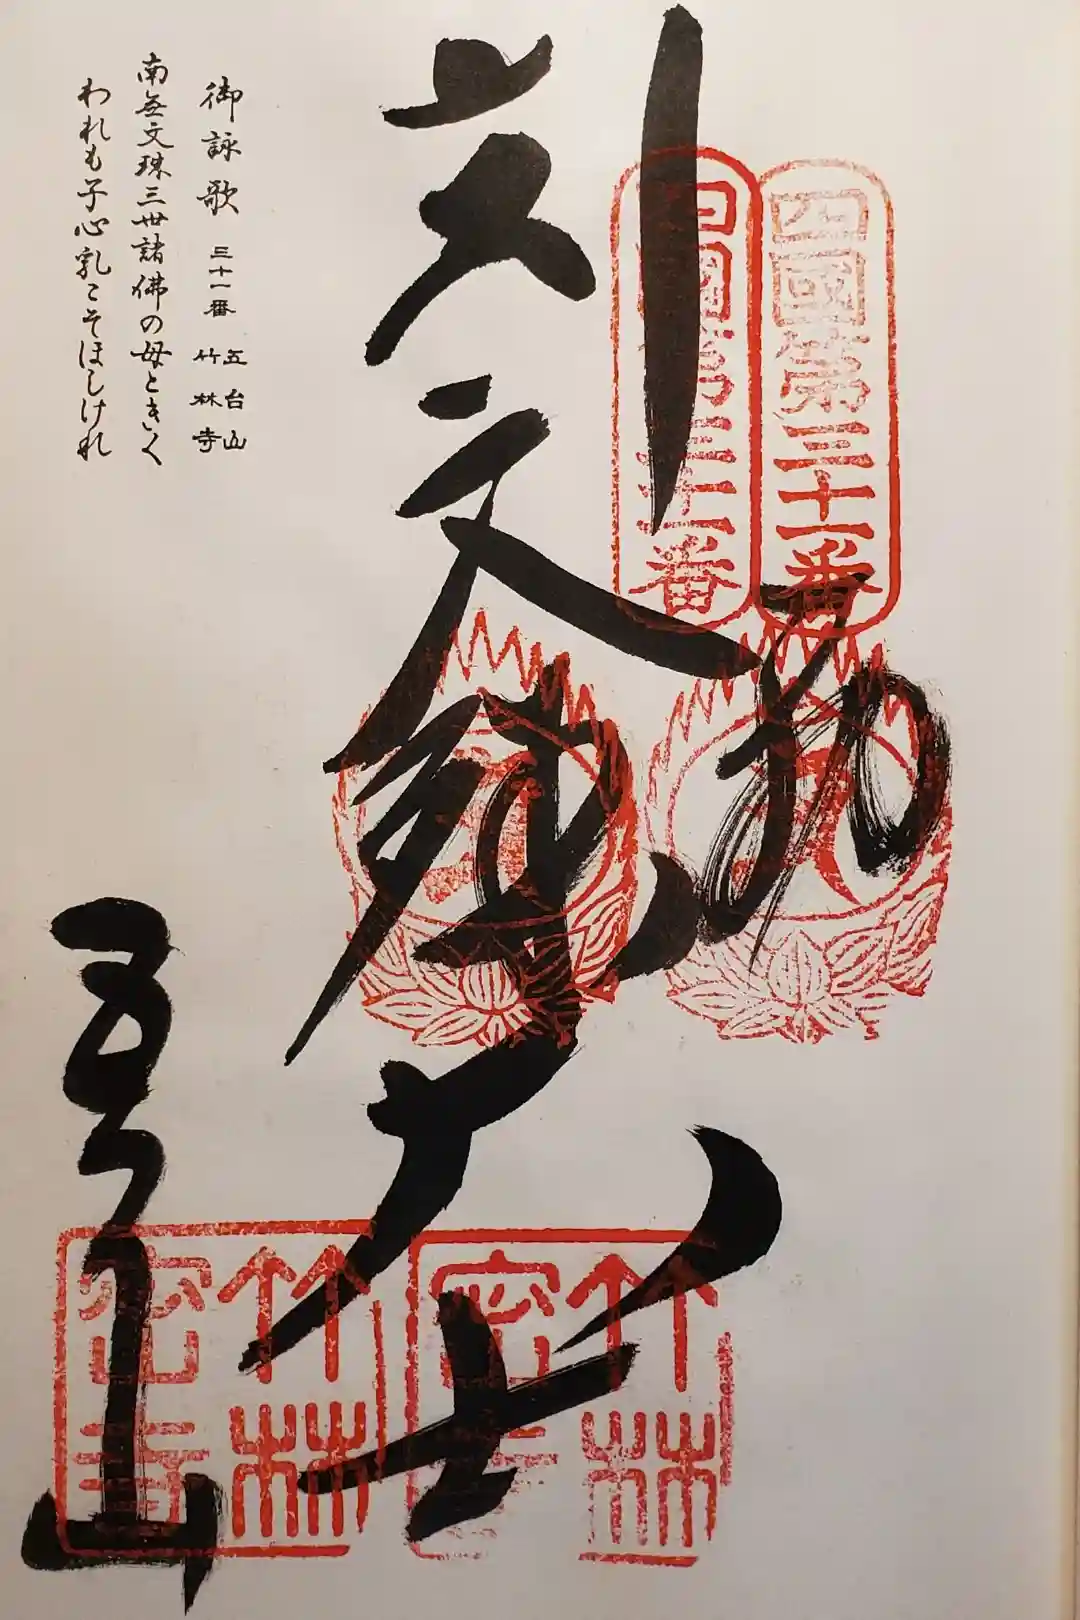 奉
四國第三十一番
四國第三十一番
文殊大士
五台山
竹林密寺
竹林密寺
御詠歌 三十一番 五台山 竹林寺
南無文珠三世諸佛の母ときく
われも子心乳こそほしけれ